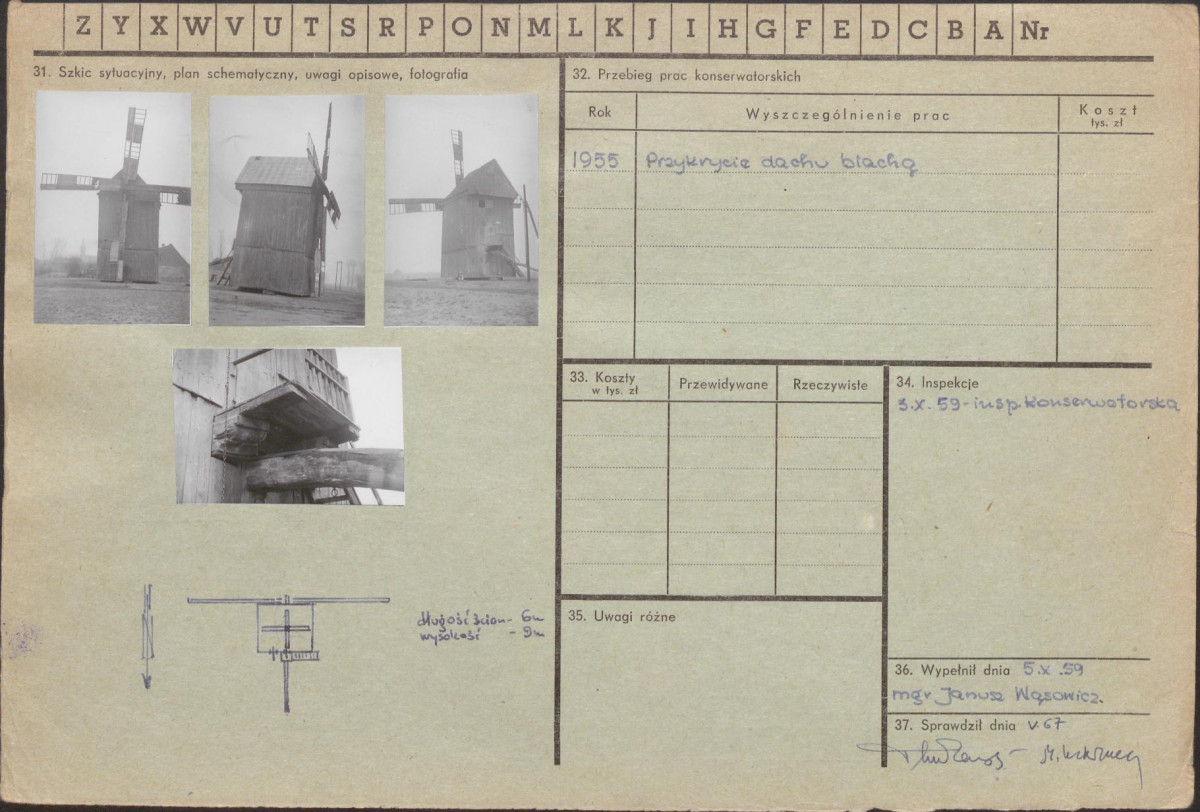 Z Y X W V U T S R P O N M L K J I H G F E D C B A Nr
31. Szkic sytuacyjny, plan schematyczny, uwagi opisowe, fotografia
długość ścian - 6m
wysokość - 9m
32. Przebieg prac konserwatorskich
Rok Wyszczególnienie prac Koszt
tys. zł
1955 Przykrycie dachu blachą
33. Koszty
w tys. zł
Przewidywane Rzeczywiste
34. Inspekcje
3.X.59 - insp. konserwatorska
35. Uwagi różne
36. Wypełnił dnia 5.X.59
mgr Janusz Wąsowicz.
37. Sprawdził dnia V.67